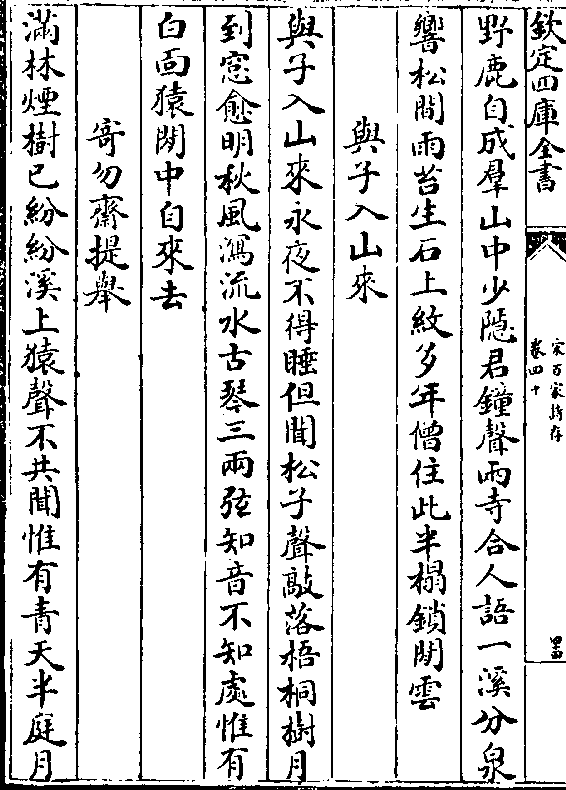 欽定四庫全書
宋百家詩存
卷四十
野鹿自成羣山中少隱君鐘聲兩寺合人語一溪分泉
響松間雨苔生石上紋多年僧住此半榻鎖閒雲
與子入山來
與子入山來永夜不得睡但聞松子聲敲落梧桐樹月
到窓愈明秋風瀉流水古琴三兩弦知音不知處惟有
白面猿閒中自來去
寄勿齋提舉
滿林煙樹已紛紛溪上猿聲不共聞惟有青天半庭月